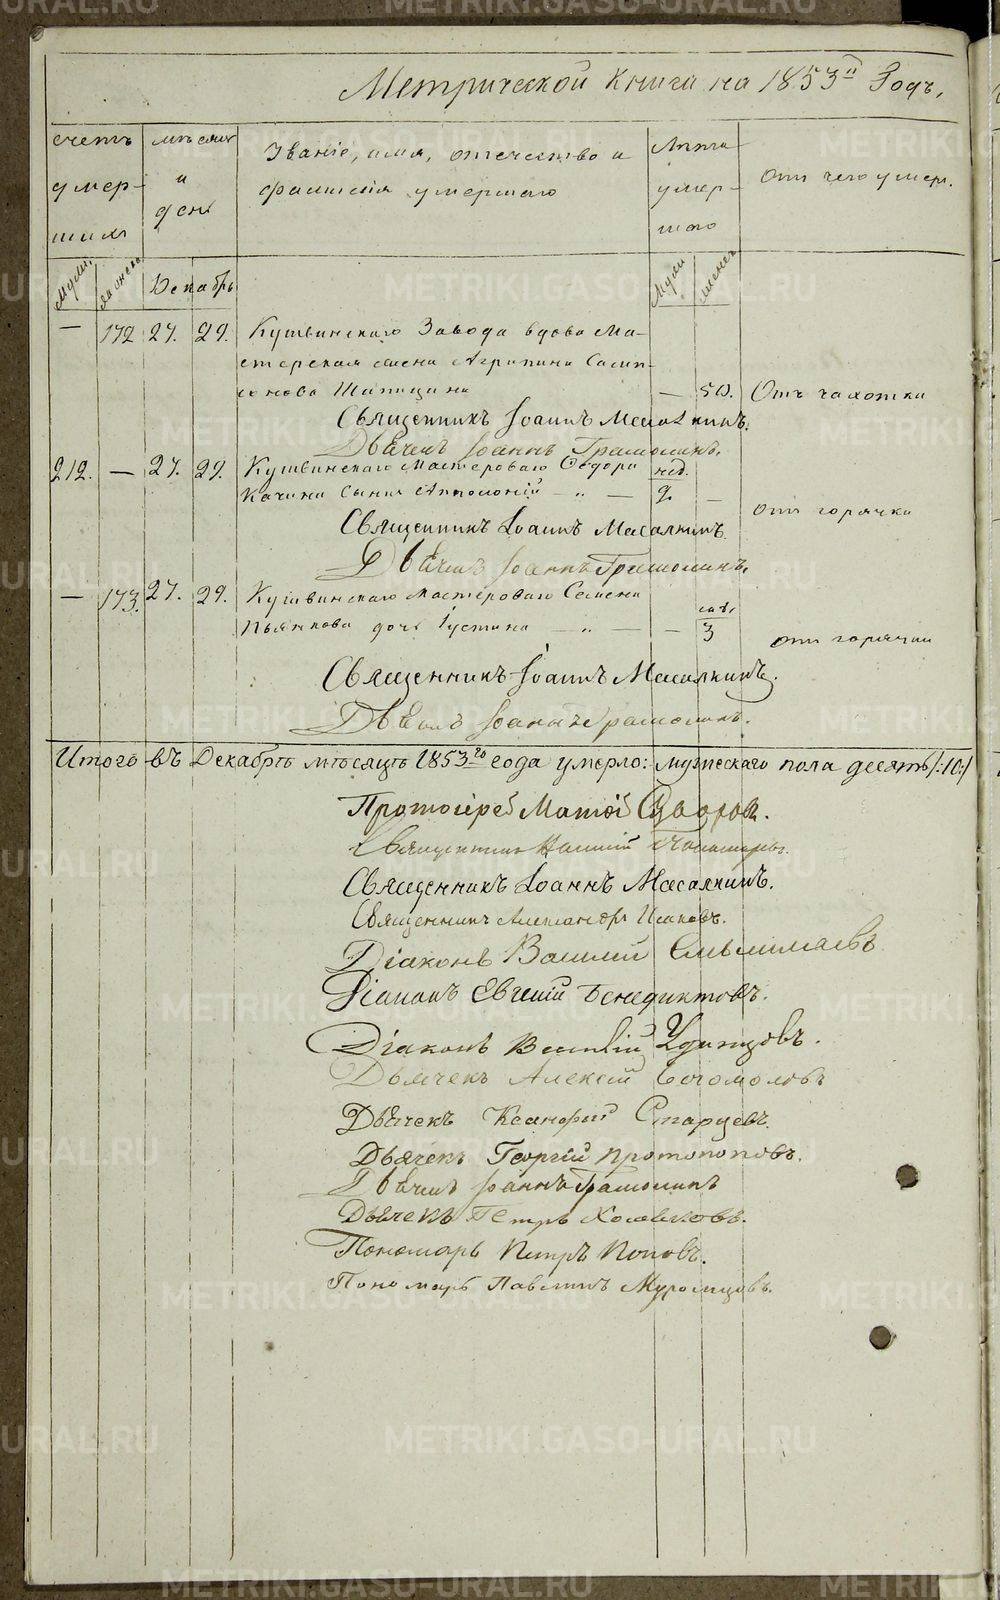 Метрической книги на 1853й Годъ,
счетъ умер-шихъ
мѣсяцъ и день
Званіе, имя, отечество и фамилія умершаго
Лѣта умер-шаго
Отъ чего умеръ.
Муж. женска Декабрь Мужи женск
— 172 27. 29. Кушвинскаго Завода вдова Ма-
стерская жена Агрипина
Шапицина — 50. Отъ чахотки
Священникъ Іоаннъ Масалкинъ.
Дьячекъ Іоаннъ Грамолинъ.
212. — 27. 29. Кушвинскаго Мастероваго Ѳедора нед.
Качина сынъ Апполоній — „ — 2. — отъ горячки
Священникъ Іоаннъ Масалкинъ
Дьячекъ Іоаннъ Грамолинъ.
— 173. 27. 29. Кушвинскаго мастероваго Семена
Пьянкова дочь Іустина — „ — — 3 отъ горячки
Священникъ Іоаннъ Масалкинъ.
Дьячекъ Іоаннъ Грамолинъ.
Итого въ Декабрѣ мѣсяцѣ 1853го года умерло: мужескаго пола десять /:10:/
Протоіерей Матѳій
Священникъ
Священникъ Іоаннъ Масалкинъ.
Священникъ Александръ Исаковъ.
Діаконъ Василій
Діаконъ Евгеній Бенедиктовъ.
Діаконъ Василій Удинцовъ.
Дьячекъ Алексій Богомоловъ
Дьячекъ Ксанфій Старцевъ.
Дьячекъ Георгій Протопоповъ.
Дьячекъ Іоаннъ Грамолинъ
Дьячекъ Петръ
Пономарь Петръ Поповъ.
Пономарь Павлинъ Муромцовъ.
METRIKI.GASO-URAL.RU